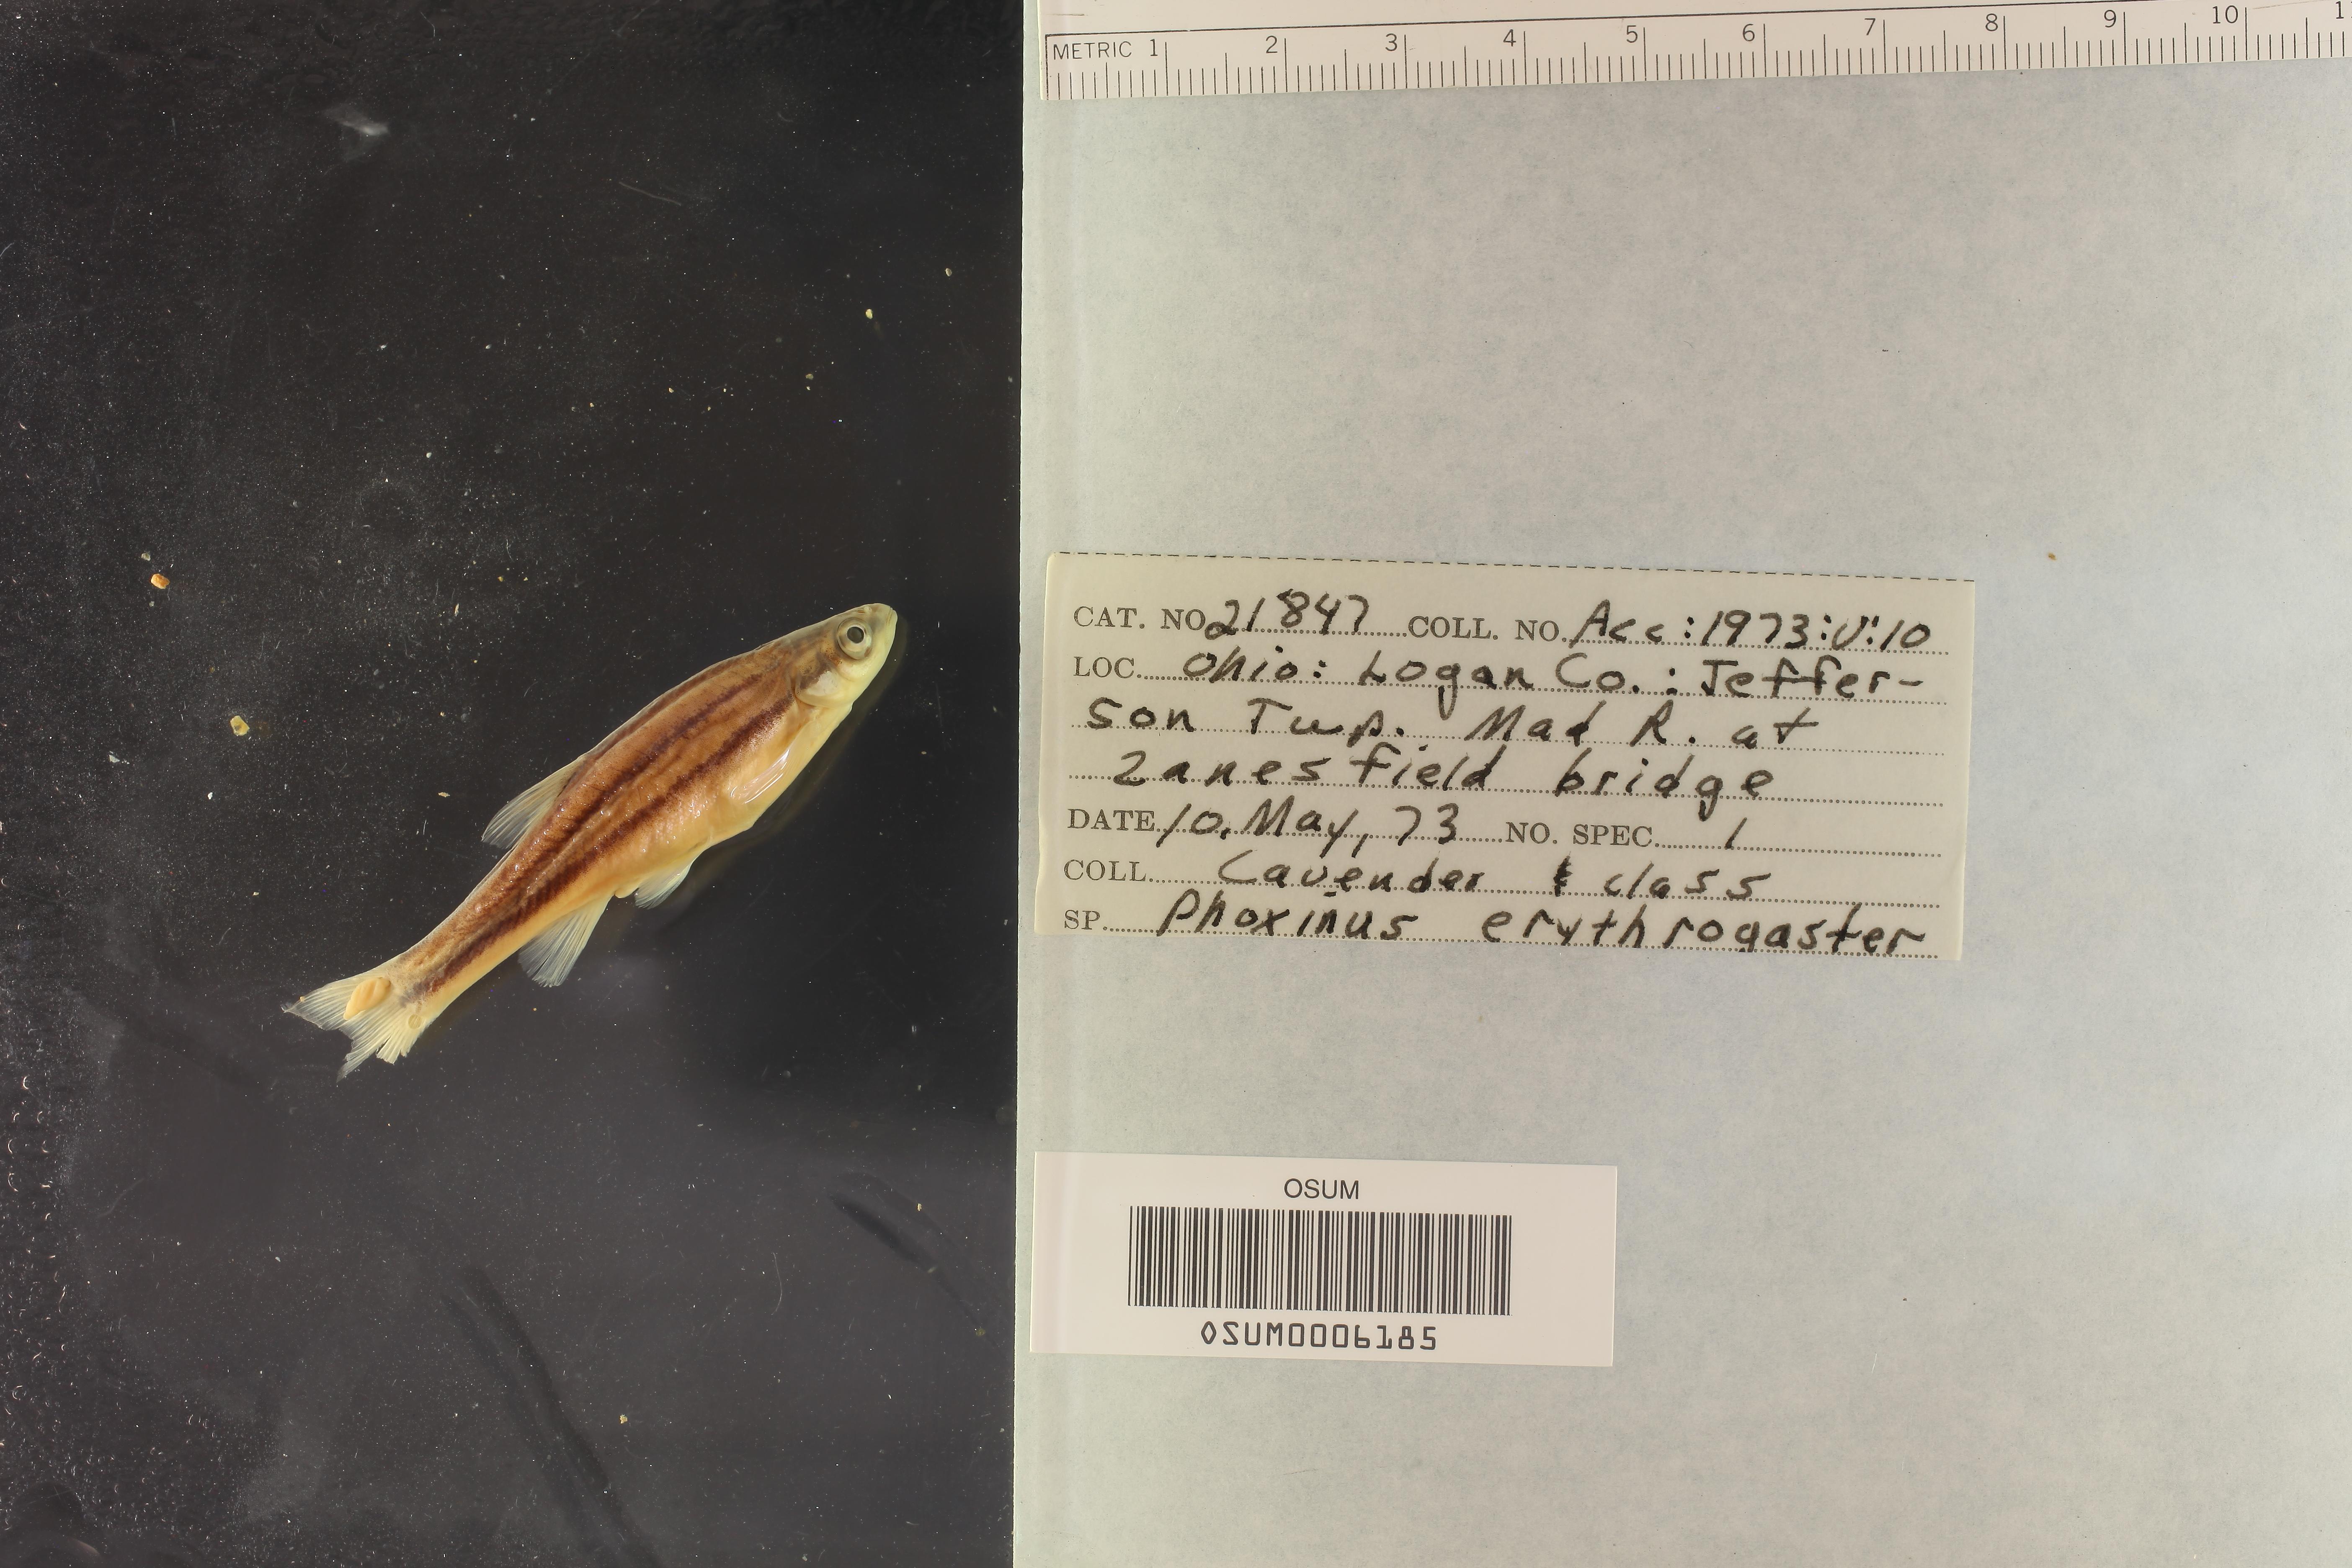 METRIC 1 2 3 4 5 6 7 8 9 10
CAT. NO. 21847 COLL. NO. Acc:1973:V:10
LOC. Ohio: Logan Co.: Jeffer-
son Twp. Mad R. at
Zanesfield bridge
DATE 10, May, 73 NO. SPEC. 1
COLL. Cavender & class
SP. Phoxinus erythrogaster
OSUM
OSUM0006185